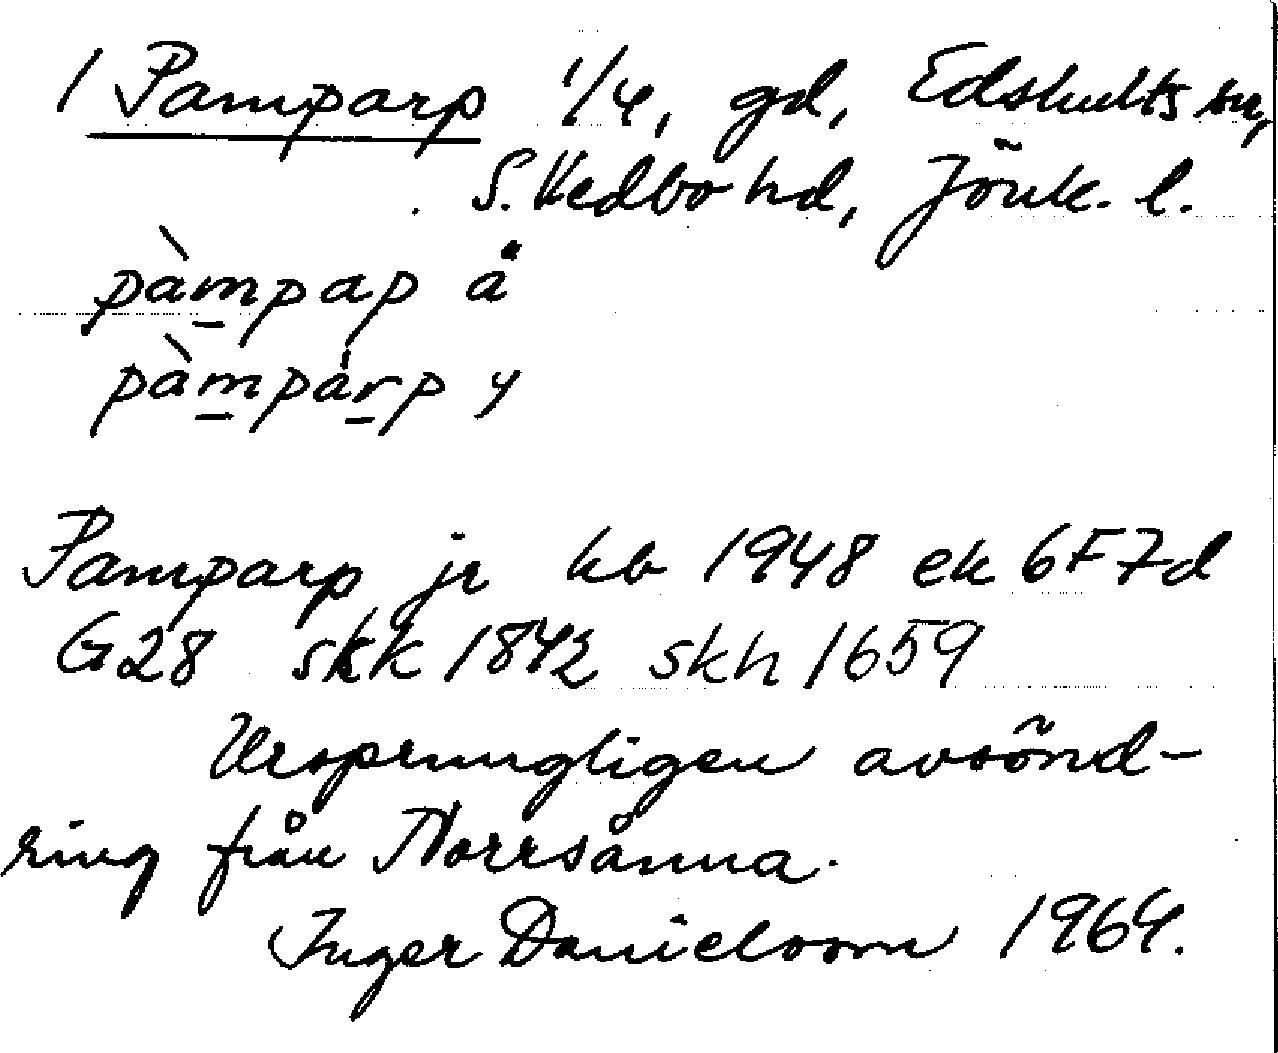 1 Pamparp 1/4, gd, Edshults sn,
S. Vedbo hd, Jönk. l.
pàmpap ä
pàmpárp y
Pamparp jr kb 1948 ek 6F7d
G28 skk 1842 skh 1659
Ursprungligen avsönd-
ring från Norrsånna.
Inger Danielsson 1964.